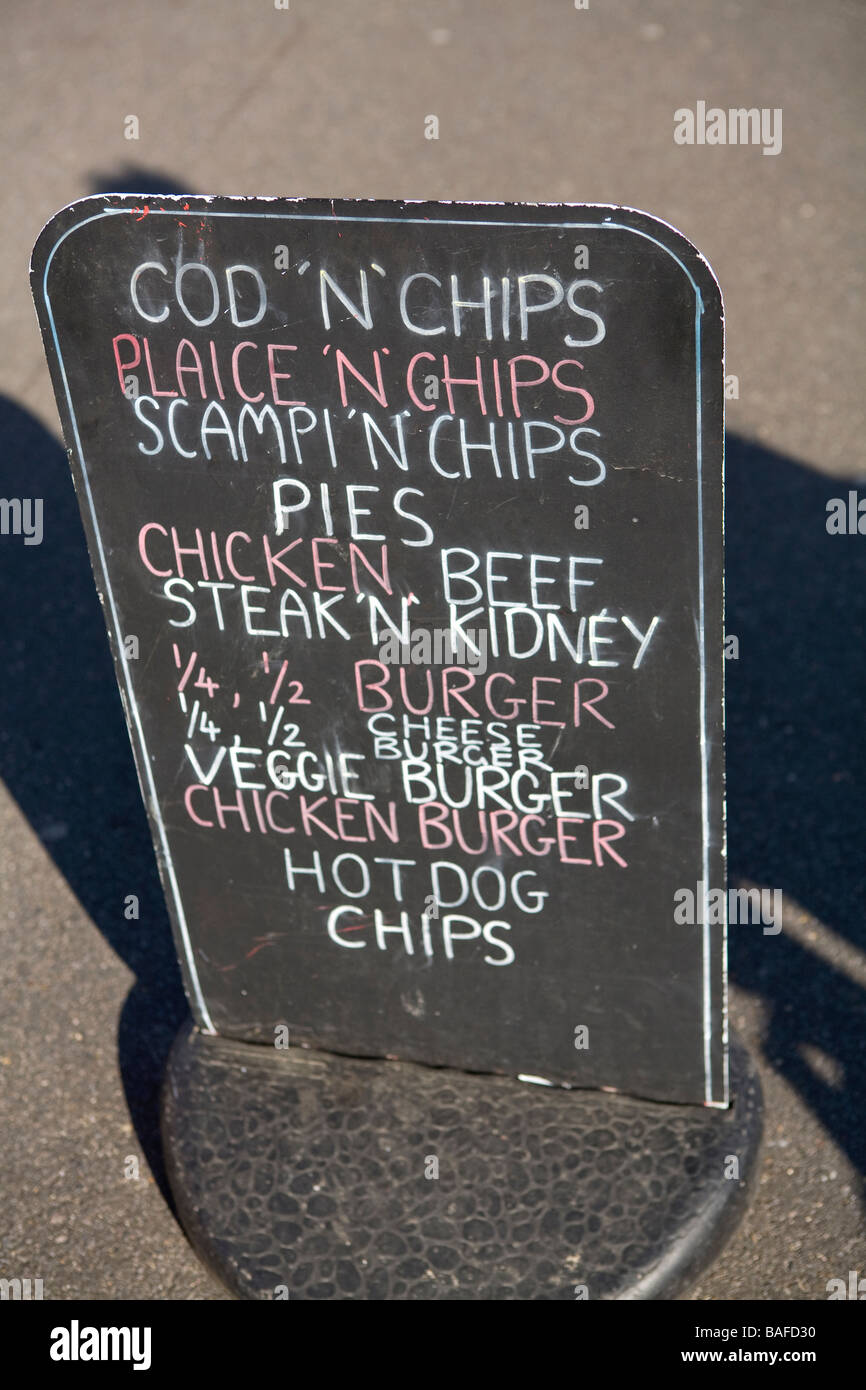 COD 'N' CHIPS
PLAICE 'N' CHIPS
SCAMPI 'N' CHIPS
PIES
CHICKEN, BEEF
STEAK 'N' KIDNEY
1/4, 1/2 BURGER
1/4, 1/2 CHEESE BURGER
VEGGIE BURGER
CHICKEN BURGER
HOT DOG
CHIPS
alamy
Image ID: BAFD30
www.alamy.com